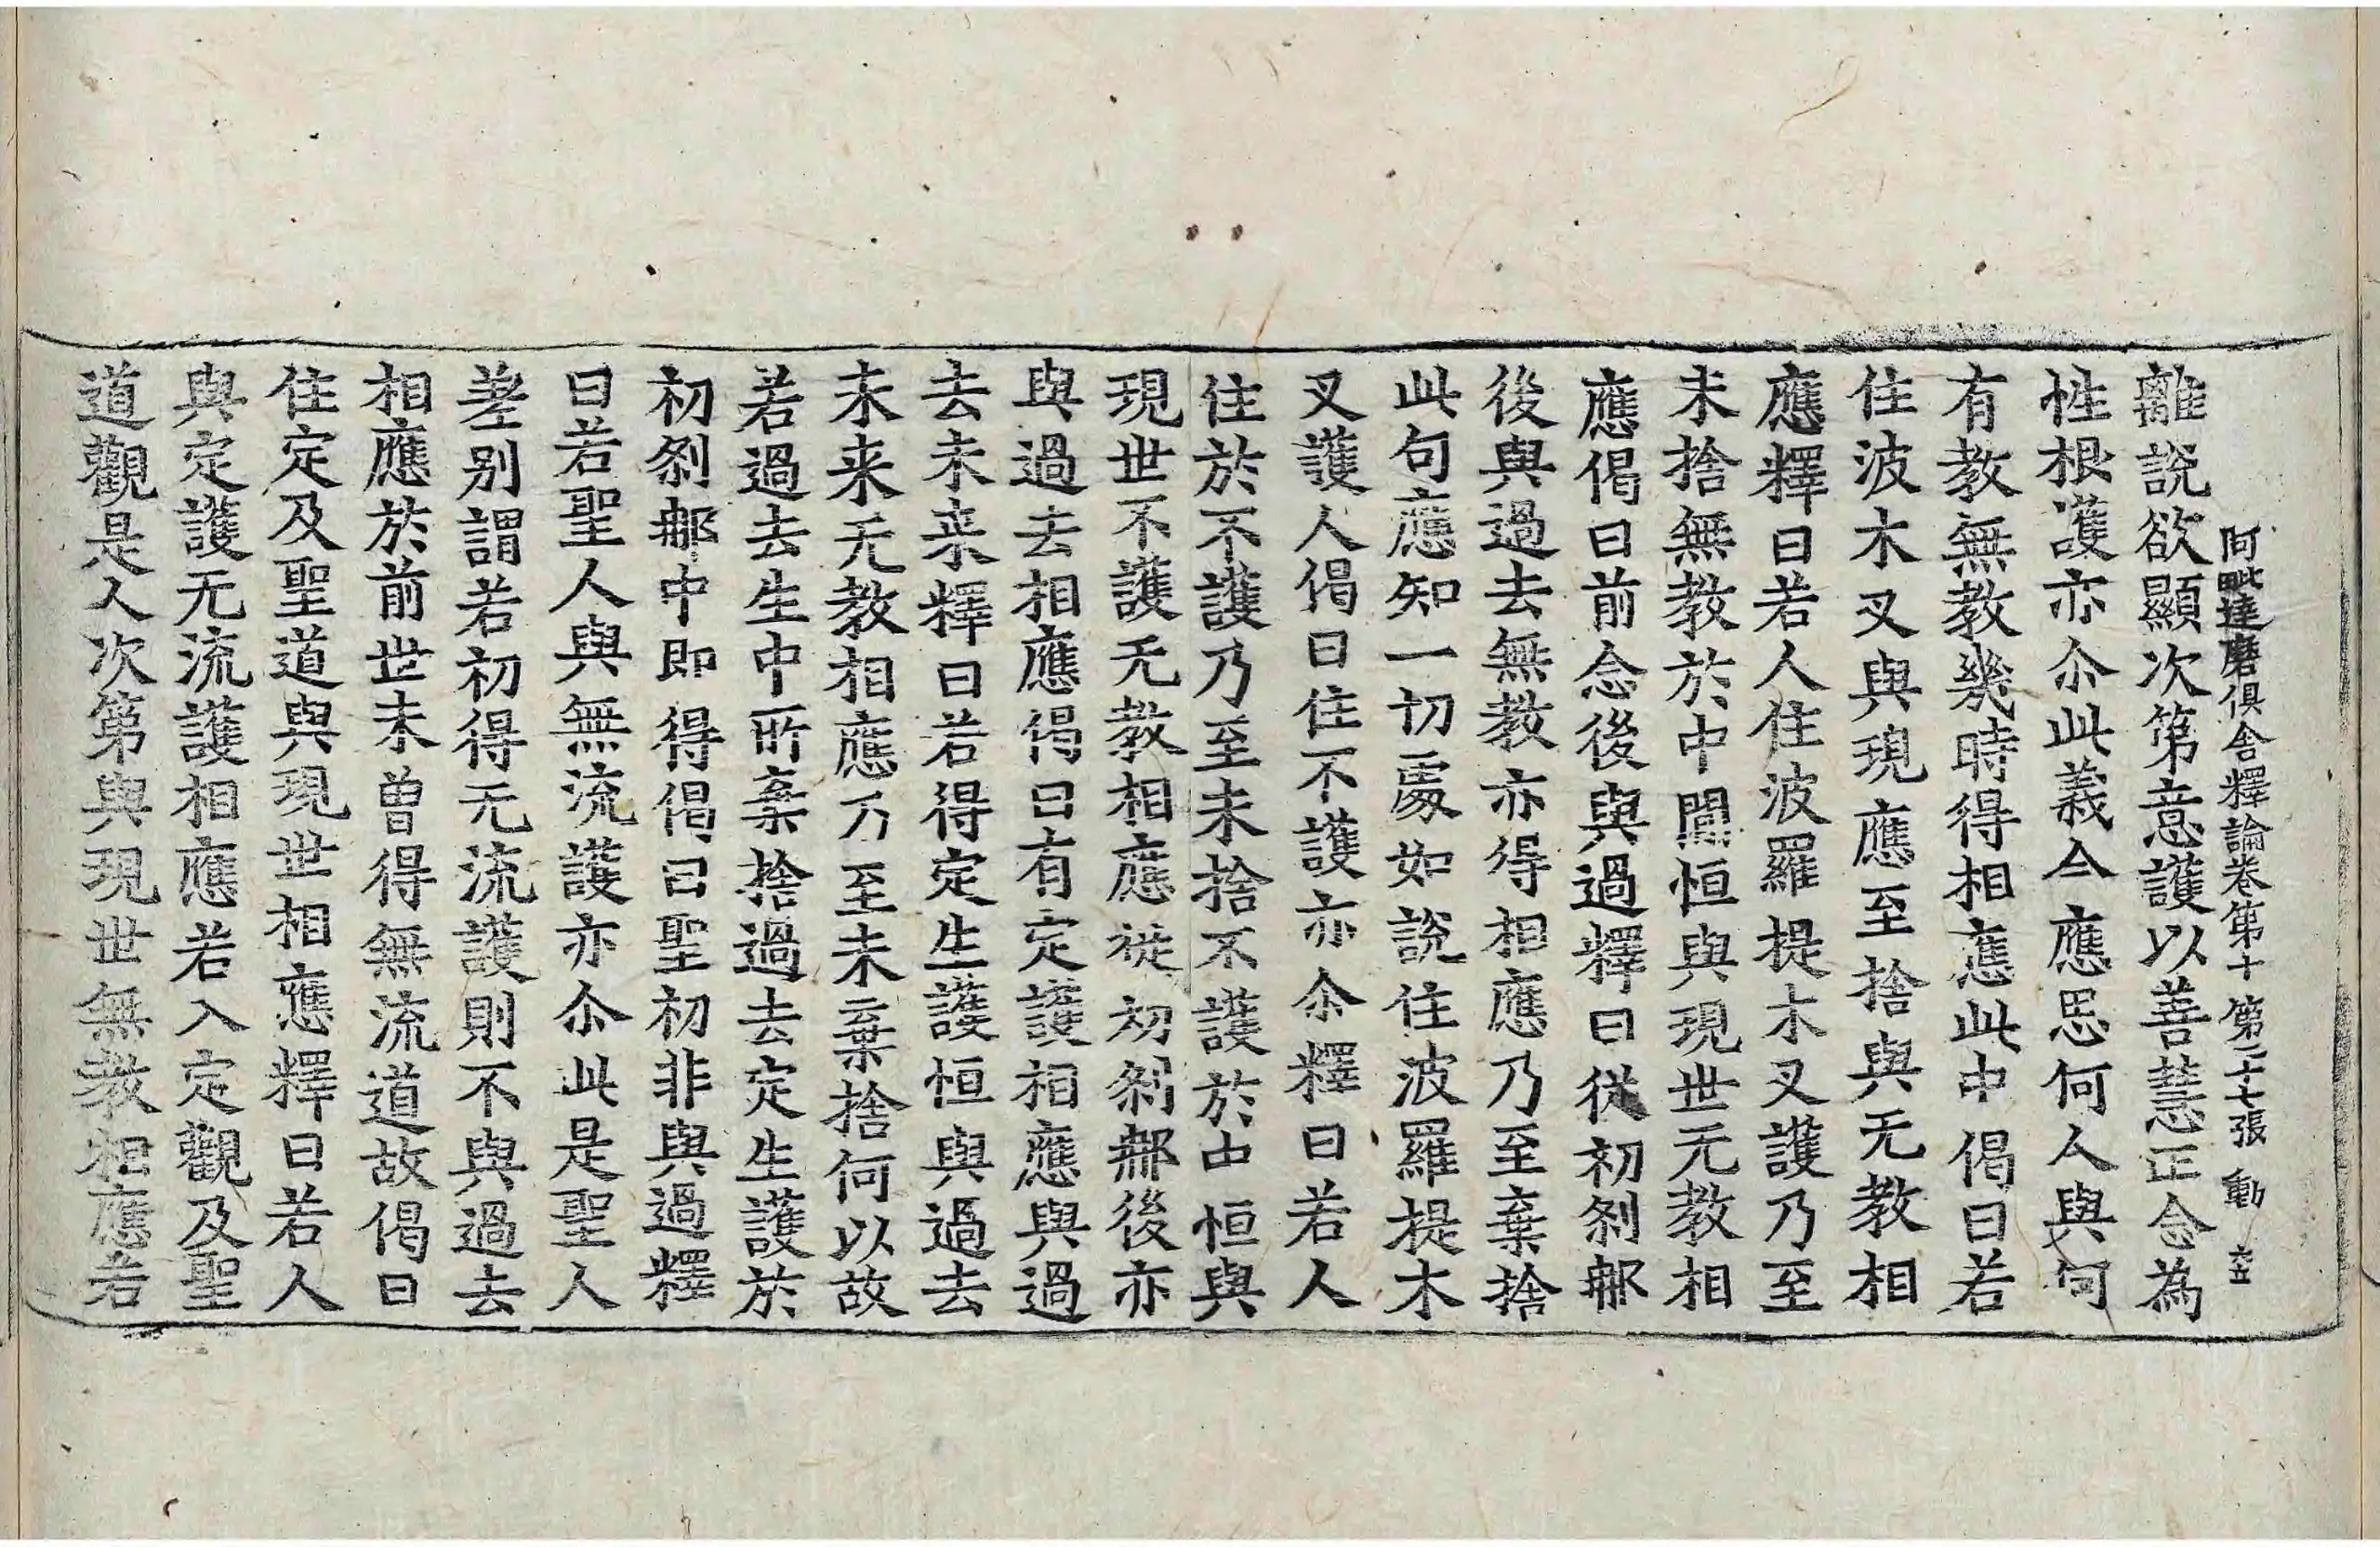 阿毗達磨俱舍釋論卷第十 第二十七張 動 六五
離說欲顯次第意護以善慧正念為
性根護亦尒此義今應思何人與何
有教無教幾時得相應此中偈曰若
住波木叉與現應至捨與无教相
應釋曰若人住波羅提木叉護乃至
未捨無教於中閒恒與現世无教相
應偈曰前念後與過釋曰從初剎那
後與過去無教亦得相應乃至棄捨
此句應知一切處如說住波羅提木
叉護人偈曰住不護亦尒釋曰若人
住於不護乃至未捨不護於中恒與
現世不護无教相應從初剎那後亦
與過去相應偈曰有定護相應與過
去未來釋曰若得定生護恒與過去
未来无教相應乃至未棄捨何以故
若過去生中所棄捨過去定生護於
初剎那中即得偈曰聖初非與過釋
曰若聖人與無流護亦尒此是聖人
差別謂若初得无流護則不與過去
相應於前世未曾得無流道故偈曰
住定及聖道與現世相應釋曰若人
與定護无流護相應若入定觀及聖
道觀是人次第與現世無教相應若